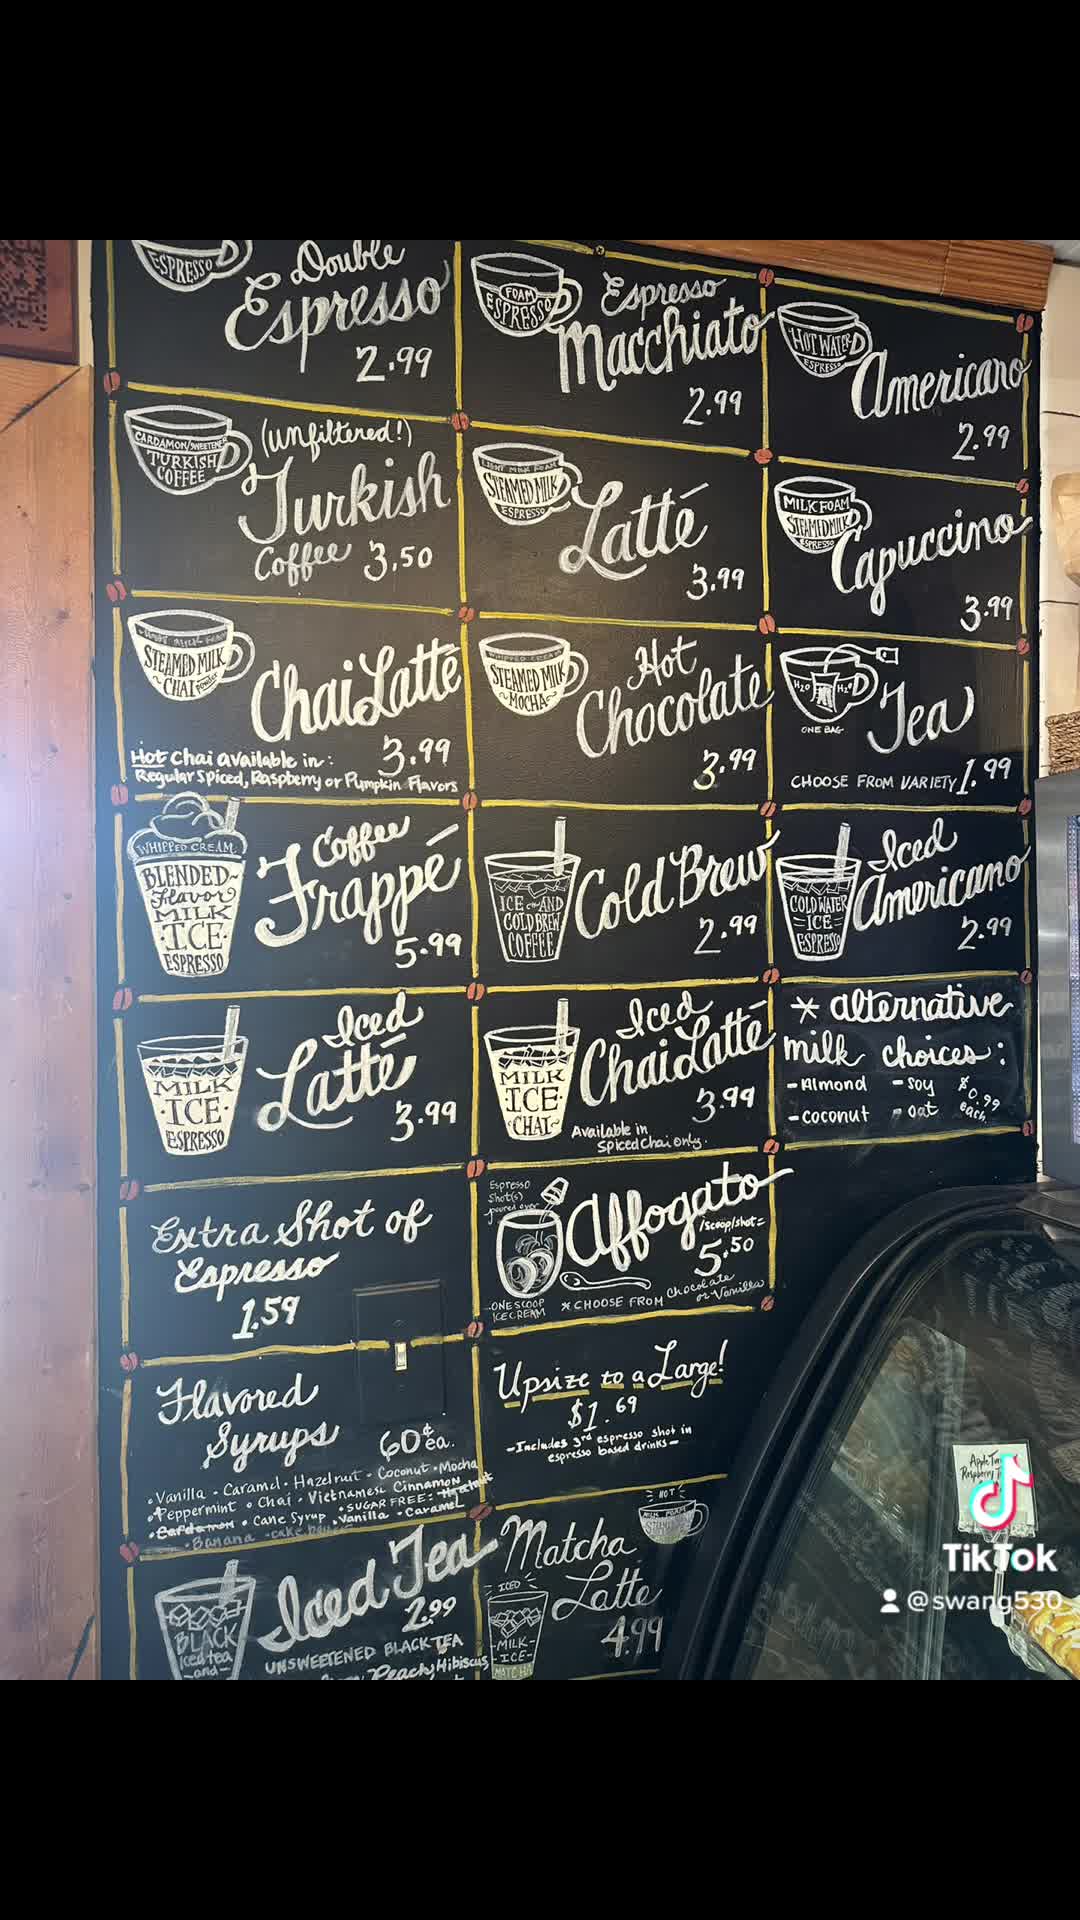 ESPRESSO
Double
Espresso
2.99
FOAM
ESPRESSO
Espresso
Macchiato
2.99
HOT WATER
ESPRESSO
Americano
2.99
CARDAMON/SWEETENER
TURKISH
COFFEE
(unfiltered!)
Turkish
Coffee 3.50
LIGHT MILK FOAM
STEAMED MILK
ESPRESSO
Latté
3.99
MILK FOAM
STEAMED MILK
ESPRESSO
Capuccino
3.99
STEAMED MILK
~CHAI powder
Chai Latté
3.99
Hot Chai available in:
Regular Spiced, Raspberry or Pumpkin Flavors
WHIPPED CREAM
STEAMED MILK
~MOCHA~
Hot
Chocolate
3.99
H2O H2O
ONE BAG
Tea
CHOOSE FROM VARIETY 1.99
WHIPPED CREAM
BLENDED~
Flavor
MILK
·ICE·
ESPRESSO
Coffee
Frappé
5.99
ICE AND
COLD BREW
COFFEE
Cold Brew
2.99
COLD WATER
=ICE=
ESPRESSO
Iced
Americano
2.99
MILK
·ICE·
ESPRESSO
Iced
Latté
3.99
MILK
·ICE·
~CHAI~
Iced
Chai Latté
3.99
Available in
Spiced Chai only.
* alternative
milk choices:
-Almond -soy $0.99
-coconut -oat each
Extra Shot of
Espresso
1.59
Espresso
Shot(s)
poured over
Affogato
1scoop/shot=
5.50
ONE SCOOP
ICE CREAM
*CHOOSE FROM Chocolate
or Vanilla
Flavored
Syrups 60¢ ea.
•Vanilla • Caramel • Hazelnut • Coconut • Mocha
•Peppermint • Chai • Vietnamese Cinnamon
•SUGAR FREE:
•Cardamon • Cane Syrup •Vanilla •Caramel
•Banana
Upsize to a Large!
$1.69
-Includes 3rd espresso shot in
espresso based drinks-
Iced Tea
2.99
BLACK
Iced tea
-and-
UNSWEETENED BLACK TEA
Peachy Hibiscus
HOT
MILK FOAM
Matcha
Latte
4.99
ICED
-MILK-
-ICE-
MATCHA
Raspberry
TikTok
@swang530